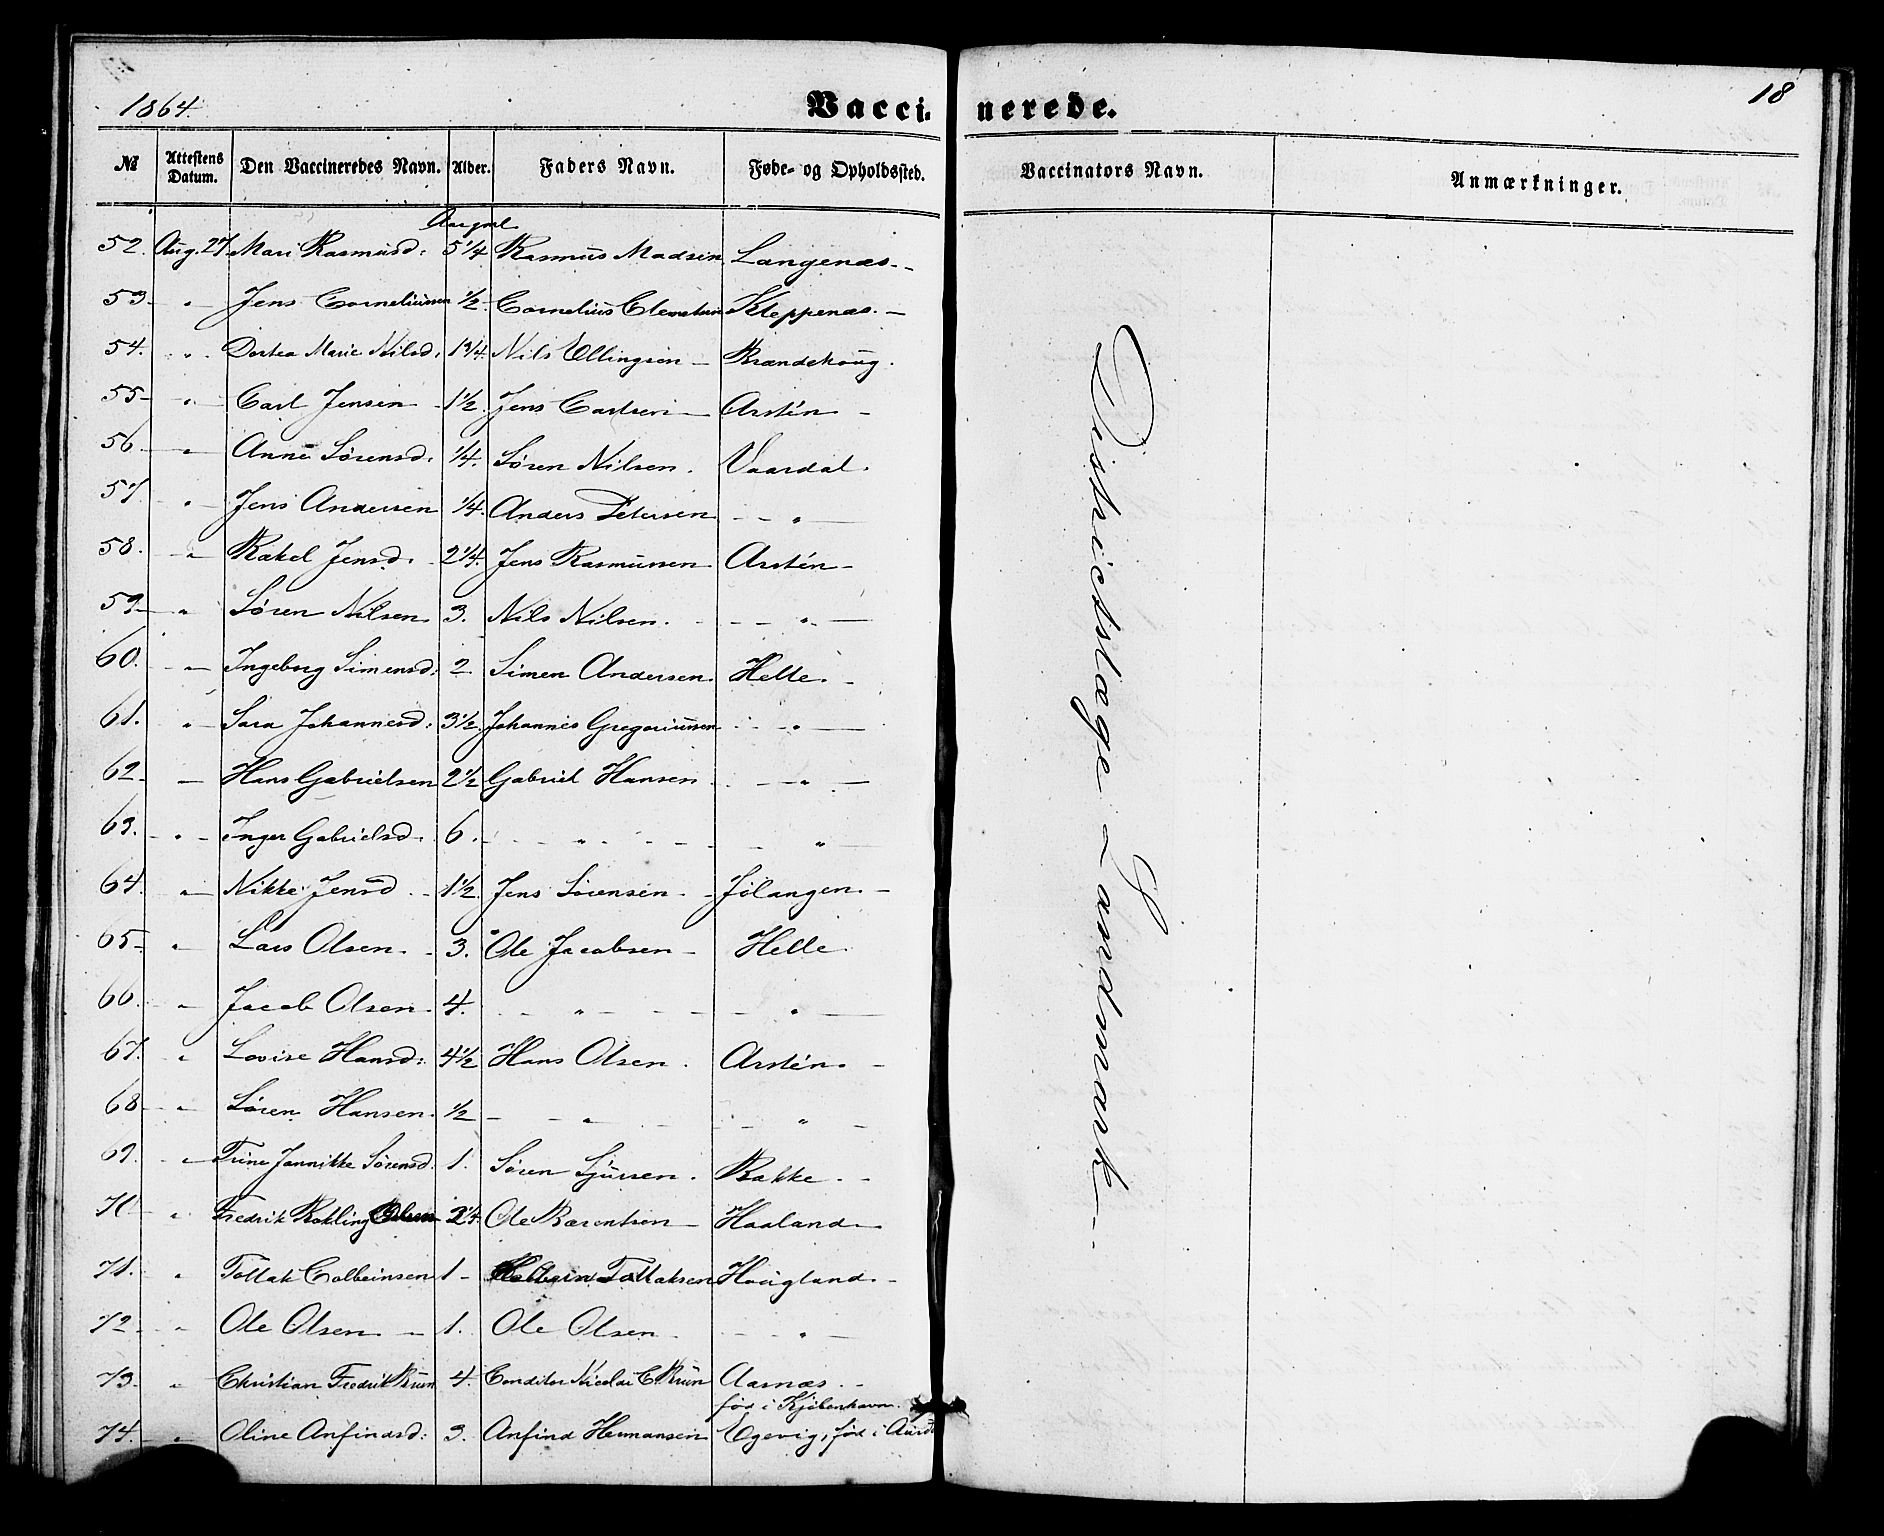 1864. Vaccinerede. 18
№ Attestens Datum. Den Vaccineredes Navn. Alder. Faders Navn. Føde- og Opholdssted. Vaccinators Navn. Anmærkninger.
Aar gml.
52. Aug. 27 Mari Rasmusd: 5 1/4 Rasmus Madsen Langenæs.
53 " Jens Corneliussen 1/2 Cornelius Clemetsen Kleppenæs.
54. " Dortea Marie Nilsd: 1 3/4. Nils Ellingsen Brændehoug.
55 " Carl Jensen 1 1/2. Jens Carlsen Arstén
56. " Anne Sørensd. 1/4. Søren Nilsen. Vaardal.
57. " Jens Andersen 1/4. Anders Petersen "
58. " Rakel Jensd. 2 1/4. Jens Rasmussen Arstén
59 " Søren Nilsen 3. Nils Nilsen. "
60. " Ingeborg Simensd: 2. Simen Andersen Helle.
61. " Sara Johannesd: 3 1/2. Johannes Gregoriussen "
62 Hans Gabrielsen 2 1/2 Gabriel Hansen "
63. " Inger Gabrielsd. 6. " "
64. " Nikke Jensd 1 1/2. Jens Sørensen Jølangen.
65 " Lars Olsen. 3. Ole Jacobsen Helle.
66. " Jacob Olsen. 4. " "
67. " Lovise Hansd: 4 1/2 Hans Olsen. Arstén.
68 " Søren Hansen. 1/2 " "
69. " Trine Jannikke Sørensd. 1. Søren Sjursen. Bakke.
70 " Fredrik Røkling Olsen 2 1/4 Ole Barentsen Haaland.
71. " Tollak Colbeinsen 1 Colbein Tollaksen Hougland.
72 " Ole Olsen 1. Ole Olsen "
73. " Christian Fredrik Brun 4. Conditor Nicolai C. Brun Aarnæs.
fød i Kjøbenhavn.
74. " Oline Anfindsd: 3. Anfind Hermansen Egevig, fød i
Districtslæge Landmark